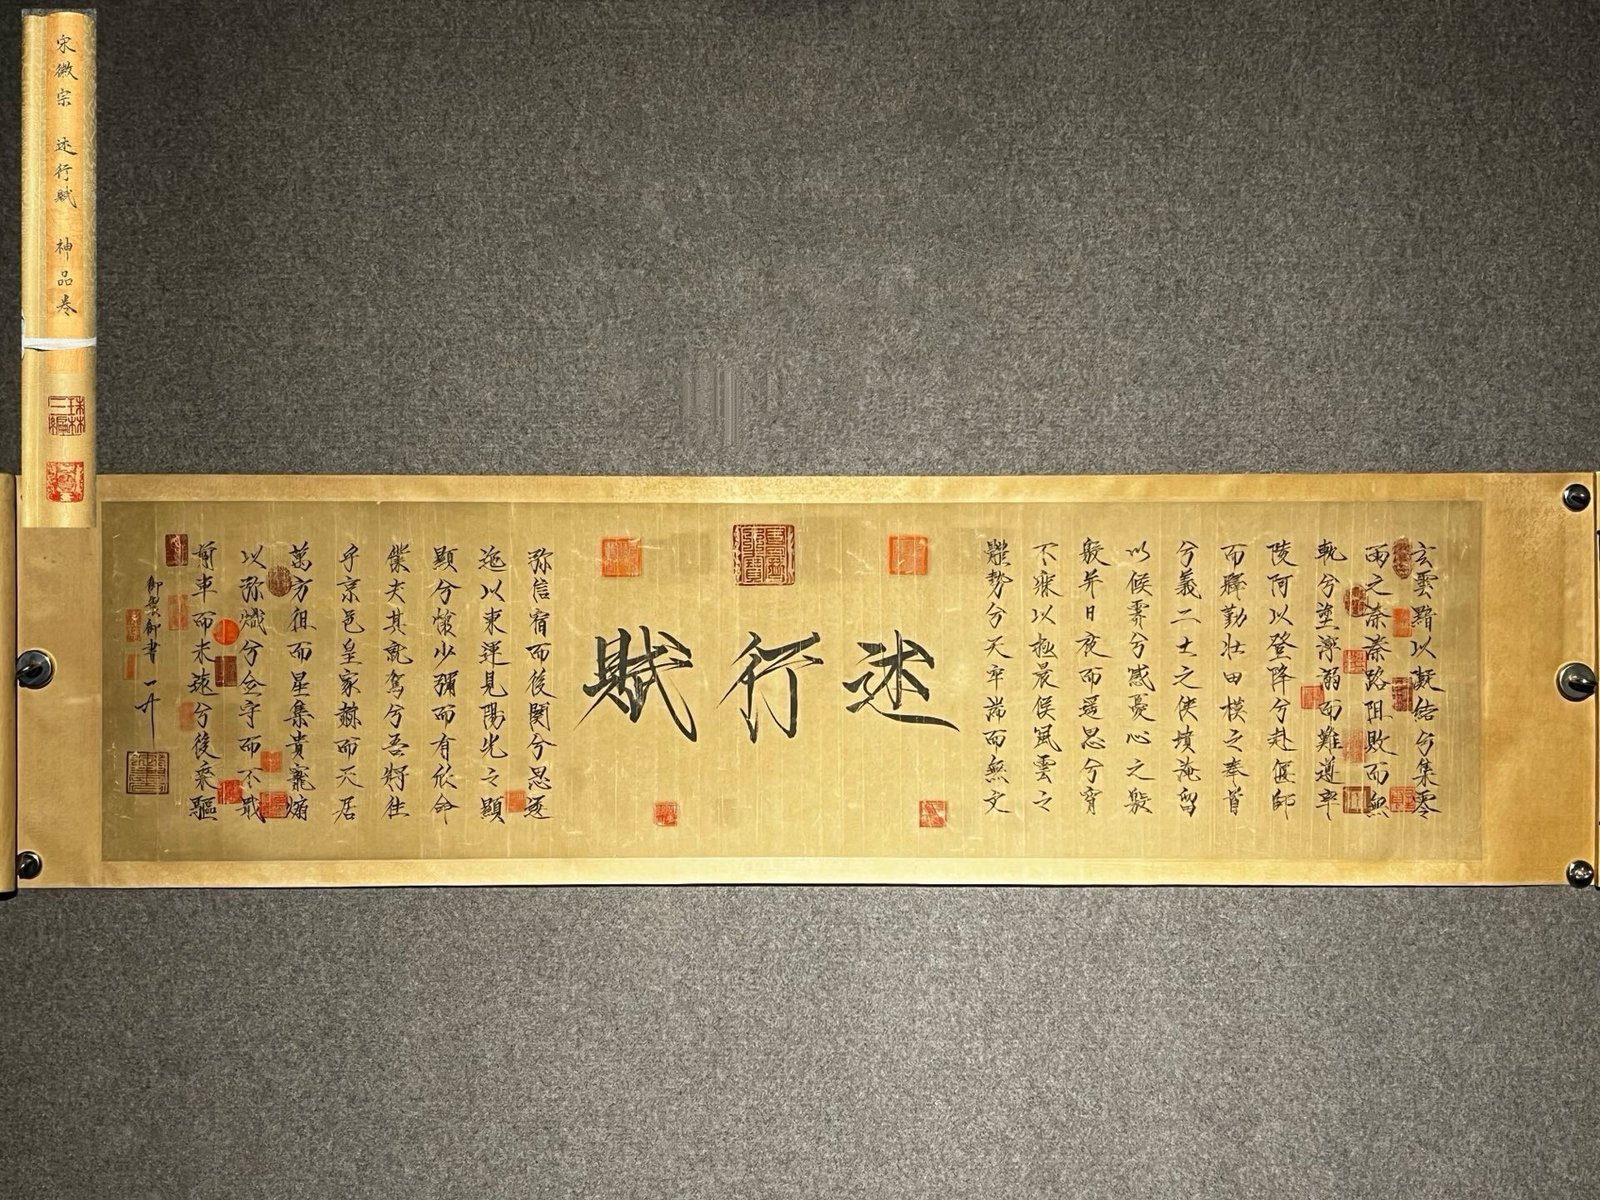 宋徽宗 述行賦 神品卷
珠林三編
玄雲黯以凝結兮集零
雨之溱溱路阻敗而無
軌兮塗濘溺而難遵率
陵阿以登降兮赴偃師
而釋勤壯田模之奉首
兮義二士之俠墳淹留
以候霽兮感憂心之殷
殷并日夜而遥思兮宵
不寐以極晨候風雲之
體勢兮天牢湍而無文
述行賦
弥信宿而後闋兮思逶
迤以東運見陽光之顯
顯兮懷少彌而有欣命
僕夫其就駕兮吾將往
乎京邑皇家赫而天居
萬方徂而星集貴寵煽
以弥熾兮僉守而不戢
前車而未遠兮後乘驅
御製御書